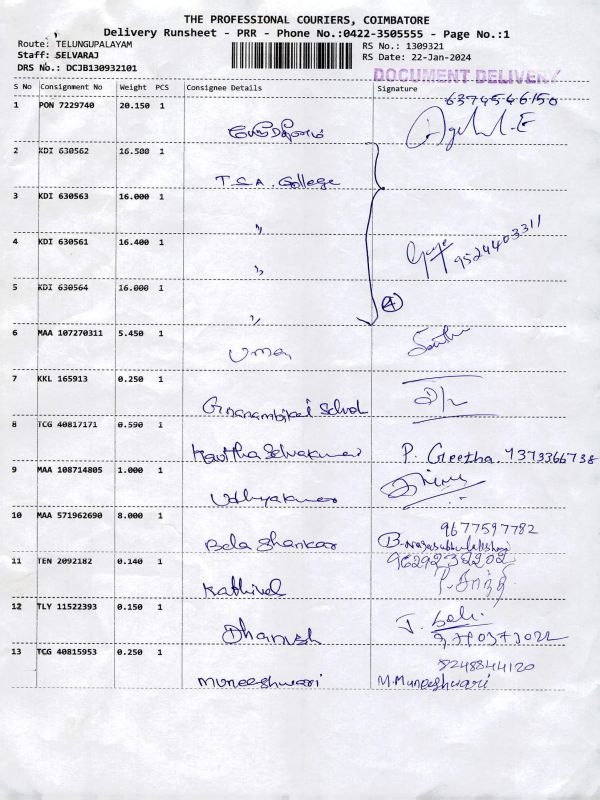 THE PROFESSIONAL COURIERS, COIMBATORE
Delivery Runsheet - PRR - Phone No.:0422-3505555 - Page No.:1
Route: TELUNGUPALAYAM
Staff: SELVARAJ
DRS No.: DCJB130932101
RS No.: 1309321
RS Date: 22-Jan-2024
DOCUMENT DELIVERY
S No Consignment No Weight PCS Consignee Details Signature
6374546150
1 PON 7229740 20.150 1
2 KDI 630562 16.500 1
T.S.A. College
3 KDI 630563 16.000 1
"
4 KDI 630561 16.400 1
" 9524403311
5 KDI 630564 16.000 1
" 4
6 MAA 107270311 5.450 1
Uma
7 KKL 165913 0.250 1
Gnanambikai School
8 TCG 40817171 0.590 1
Kavitha Selvakumar P. Geetha. 7373366738
9 MAA 108714805 1.000 1
Udhyakumar
10 MAA 571962690 8.000 1
9677597782
Bala Shankar
11 TEN 2092182 0.140 1
9629232202
Kathirvel
12 TLY 11522393 0.150 1
Dhanush
13 TCG 40815953 0.250 1
8248844120
Muneeshwari M.Muneeshwari